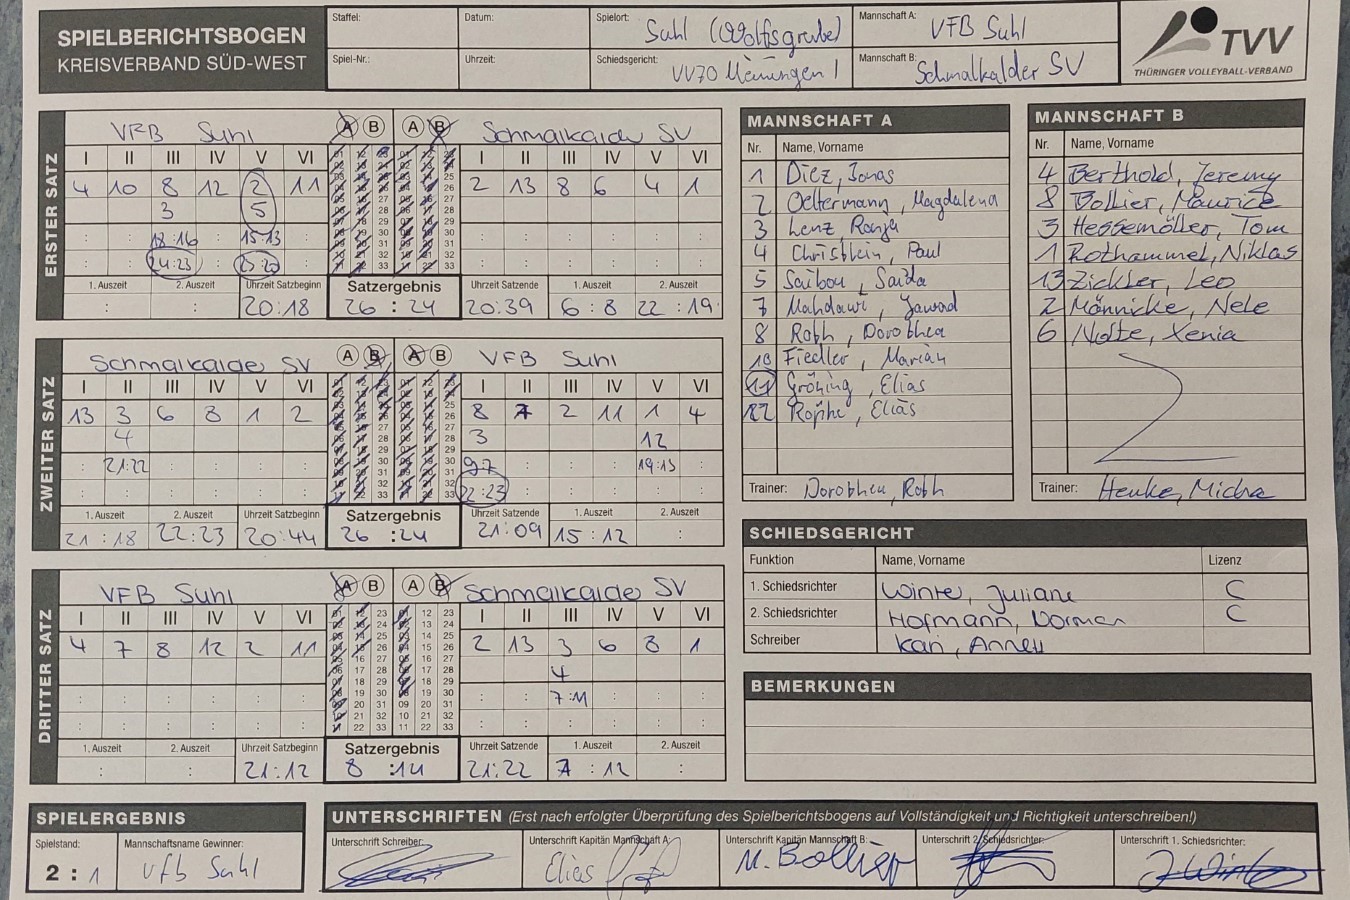 SPIELBERICHTSBOGEN
KREISVERBAND SÜD-WEST
Staffel:
Datum:
Spielort: Suhl (Wolfsgrube)
Mannschaft A: VFB Suhl
Spiel-Nr.:
Uhrzeit:
Schiedsgericht: VV70 Meiningen I
Mannschaft B: Schmalkalder SV
TVV
THÜRINGER VOLLEYBALL-VERBAND
ERSTER SATZ
VFB Suhl A B A B Schmalkalder SV
I II III IV V VI I II III IV V VI
4 10 8 12 2 11 2 13 8 6 4 1
3 5
18:16 15:13
24:23 25:23
1. Auszeit 2. Auszeit Uhrzeit Satzbeginn Satzergebnis Uhrzeit Satzende 1. Auszeit 2. Auszeit
: : 20:18 26 : 24 20:39 6 : 8 22 : 19
ZWEITER SATZ
Schmalkalder SV A B A B VFB Suhl
I II III IV V VI I II III IV V VI
13 3 6 8 1 2 8 7 2 11 1 4
4 3 12
21:22 9:7 19:13
22:23
1. Auszeit 2. Auszeit Uhrzeit Satzbeginn Satzergebnis Uhrzeit Satzende 1. Auszeit 2. Auszeit
21 : 18 22:23 20:44 26 : 24 21:09 15 : 12 :
DRITTER SATZ
VFB Suhl A B A B Schmalkalder SV
I II III IV V VI I II III IV V VI
4 7 8 12 2 11 2 13 3 6 8 1
4
7:11
1. Auszeit 2. Auszeit Uhrzeit Satzbeginn Satzergebnis Uhrzeit Satzende 1. Auszeit 2. Auszeit
: : 21:12 8 :14 21:22 7 : 12 :
MANNSCHAFT A
Nr. Name, Vorname
1 Diez, Jonas
2 Oeltermann, Magdalena
3 Lenz, Ronja
4 Christlein, Paul
5 Saibou, Saida
7 Mahdawi, Jawad
8 Roth, Dorothea
10 Fiedler, Marian
11 Gröning, Elias
12 Elias
Trainer: Dorothea, Roth
MANNSCHAFT B
Nr. Name, Vorname
4 Berthold, Jeremy
8 Bollier, Maurice
3 Hessemöller, Tom
1 Rothammel, Niklas
13 Zickler, Leo
2 Männicke, Nele
6 Nolte, Xenia
Trainer: Henke, Micha
SCHIEDSGERICHT
Funktion Name, Vorname Lizenz
1. Schiedsrichter Winter, Juliane C
2. Schiedsrichter Hofmann, Norman C
Schreiber Kari, Annett
BEMERKUNGEN
SPIELERGEBNIS
Spielstand: Mannschaftsname Gewinner:
2 : 1 Vfb Suhl
UNTERSCHRIFTEN (Erst nach erfolgter Überprüfung des Spielberichtsbogens auf Vollständigkeit und Richtigkeit unterschreiben!)
Unterschrift Schreiber:
Unterschrift Kapitän Mannschaft A: Elias
Unterschrift Kapitän Mannschaft B: M. Bollier
Unterschrift 2. Schiedsrichter:
Unterschrift 1. Schiedsrichter: J. Winter